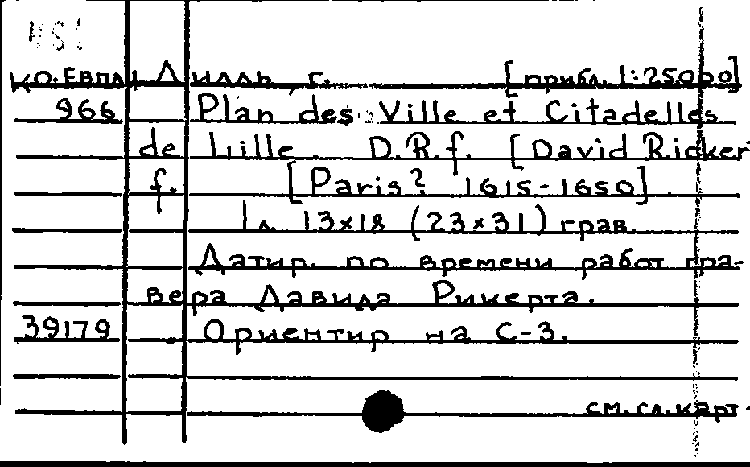 КО.ЕВПЛ Лилль, г. [прибл. 1:25000]
966 Plan des Ville et Citadelles
de Lille D.R.f. [David Ricker
f. [Paris? 1615-1650]
1 л. 13x18 (23x31) грав.
Датир. по времени работ гра-
вера Давида Рикерта.
39179 Ориентир на С-З.
см. сл. карт.